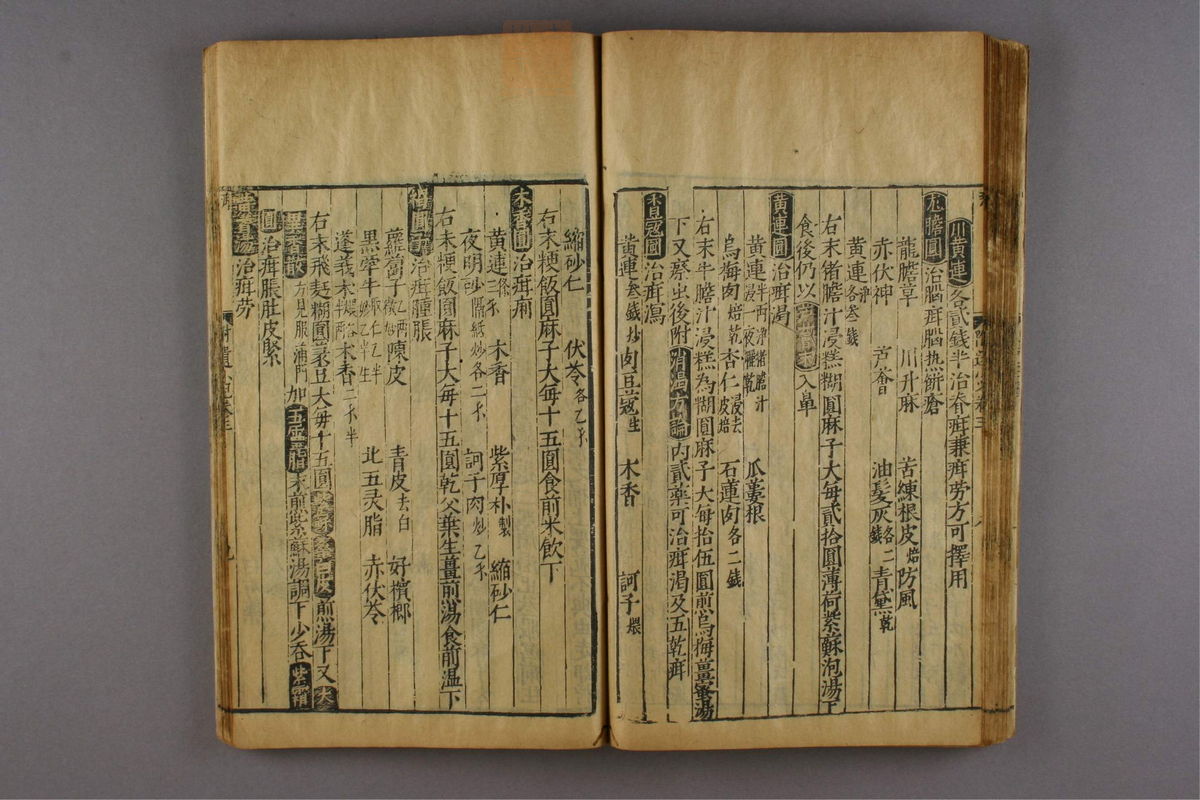 川黃連 各貳錢半治脊疳兼疳劳方可擇用
龍膽圓 治腦疳腦热餅瘡
龍膽草 川升麻 苦練根皮焙 防風
赤伏神 芦薈 油髮灰各二錢 青黛乾
黃連淨各叁錢
右末猪膽汁浸糕糊圓麻子大每貳拾圓薄荷紫蘇泡湯下
食後仍以 入鼻
黃連圓 治疳渴
黃連半两淨猪膽汁浸一夜晒乾 瓜蔞根
烏梅肉焙乾 杏仁浸去皮焙 石蓮肉各二錢
右末牛膽汁浸糕為糊圓麻子大每拾伍圓煎烏梅薑蜜湯
下又磨出後附 消渴方論 内貳藥可治疳渴及五乾疳
木香豆蔻圓 治疳瀉
黃連叁錢炒 肉豆蔻生 木香 訶子煨
縮砂仁 伏苓各乙不
右末粳飯圓麻子大每十五圓食前米飲下
木香圓 治疳痢
黃連三不 木香 紫厚朴製 縮砂仁
夜明砂隔紙炒各二不 訶子肉炒乙不
右末粳飯圓麻子大每十五圓乾艾葉生薑煎湯食前温下
褐圓 治疳腫脹
蘿蔔子乙两微炒 陳皮 青皮去白 好檳榔
黑牽牛取仁乙半炒乙半生 北五灵脂 赤伏苓
蓬莪术煨各半两 木香二不半
右末飛麪糊圓菉豆大每十五圓 煎湯下又
方見服 加 五灵脂 末煎紫蘇湯調下少吞 紫霜
圓 治疳脹肚皮緊
黃耆湯 治疳劳